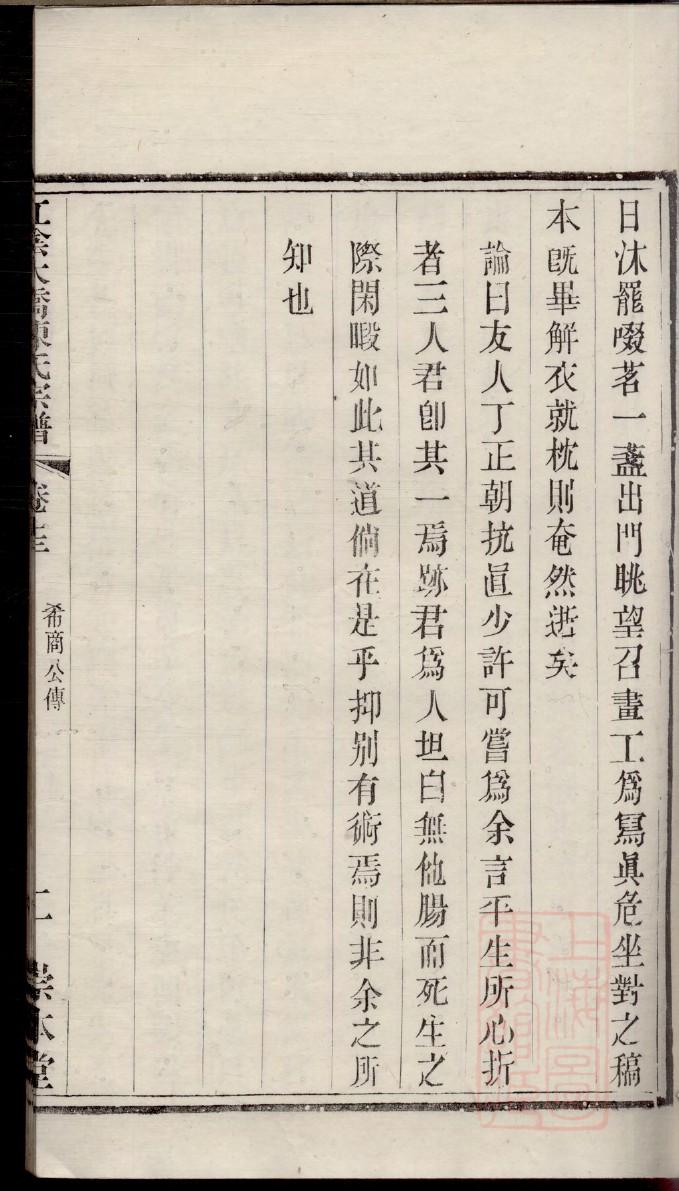 日沐罷啜茗一盞出門眺望召畫工爲寫眞危坐對之稿
本既畢解衣就枕則奄然逝矣
論曰友人丁正朝抗直少許可嘗爲余言平生所心折
者三人君卽其一焉跡君爲人坦白無他腸而死生之
際閑暇如此其道倘在是乎抑别有術焉則非余之所
知也
江陰大橋陳氏宗譜
卷十三
希商公傳
二
崇本堂